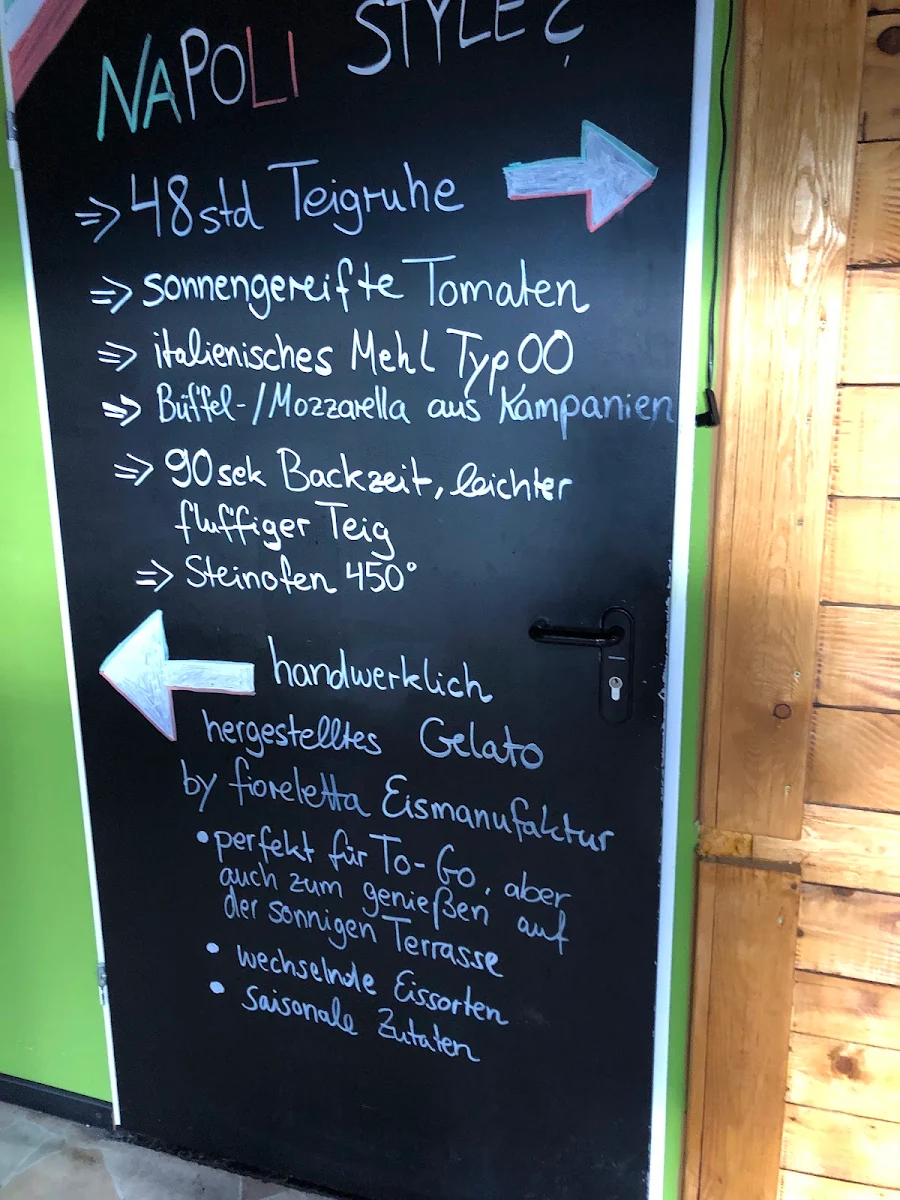 NAPOLI STYLE?
⇒ 48std Teigruhe
⇒ sonnengereifte Tomaten
⇒ italienisches Mehl Typ 00
⇒ Büffel-/Mozzarella aus Kampanien
⇒ 90sek Backzeit, leichter
fluffiger Teig
⇒ Steinofen 450°
handwerklich
hergestelltes Gelato
by fioreletta Eismanufaktur
• perfekt für To-Go, aber
auch zum genießen auf
der sonnigen Terrasse
• wechselnde Eissorten
• Saisonale Zutaten